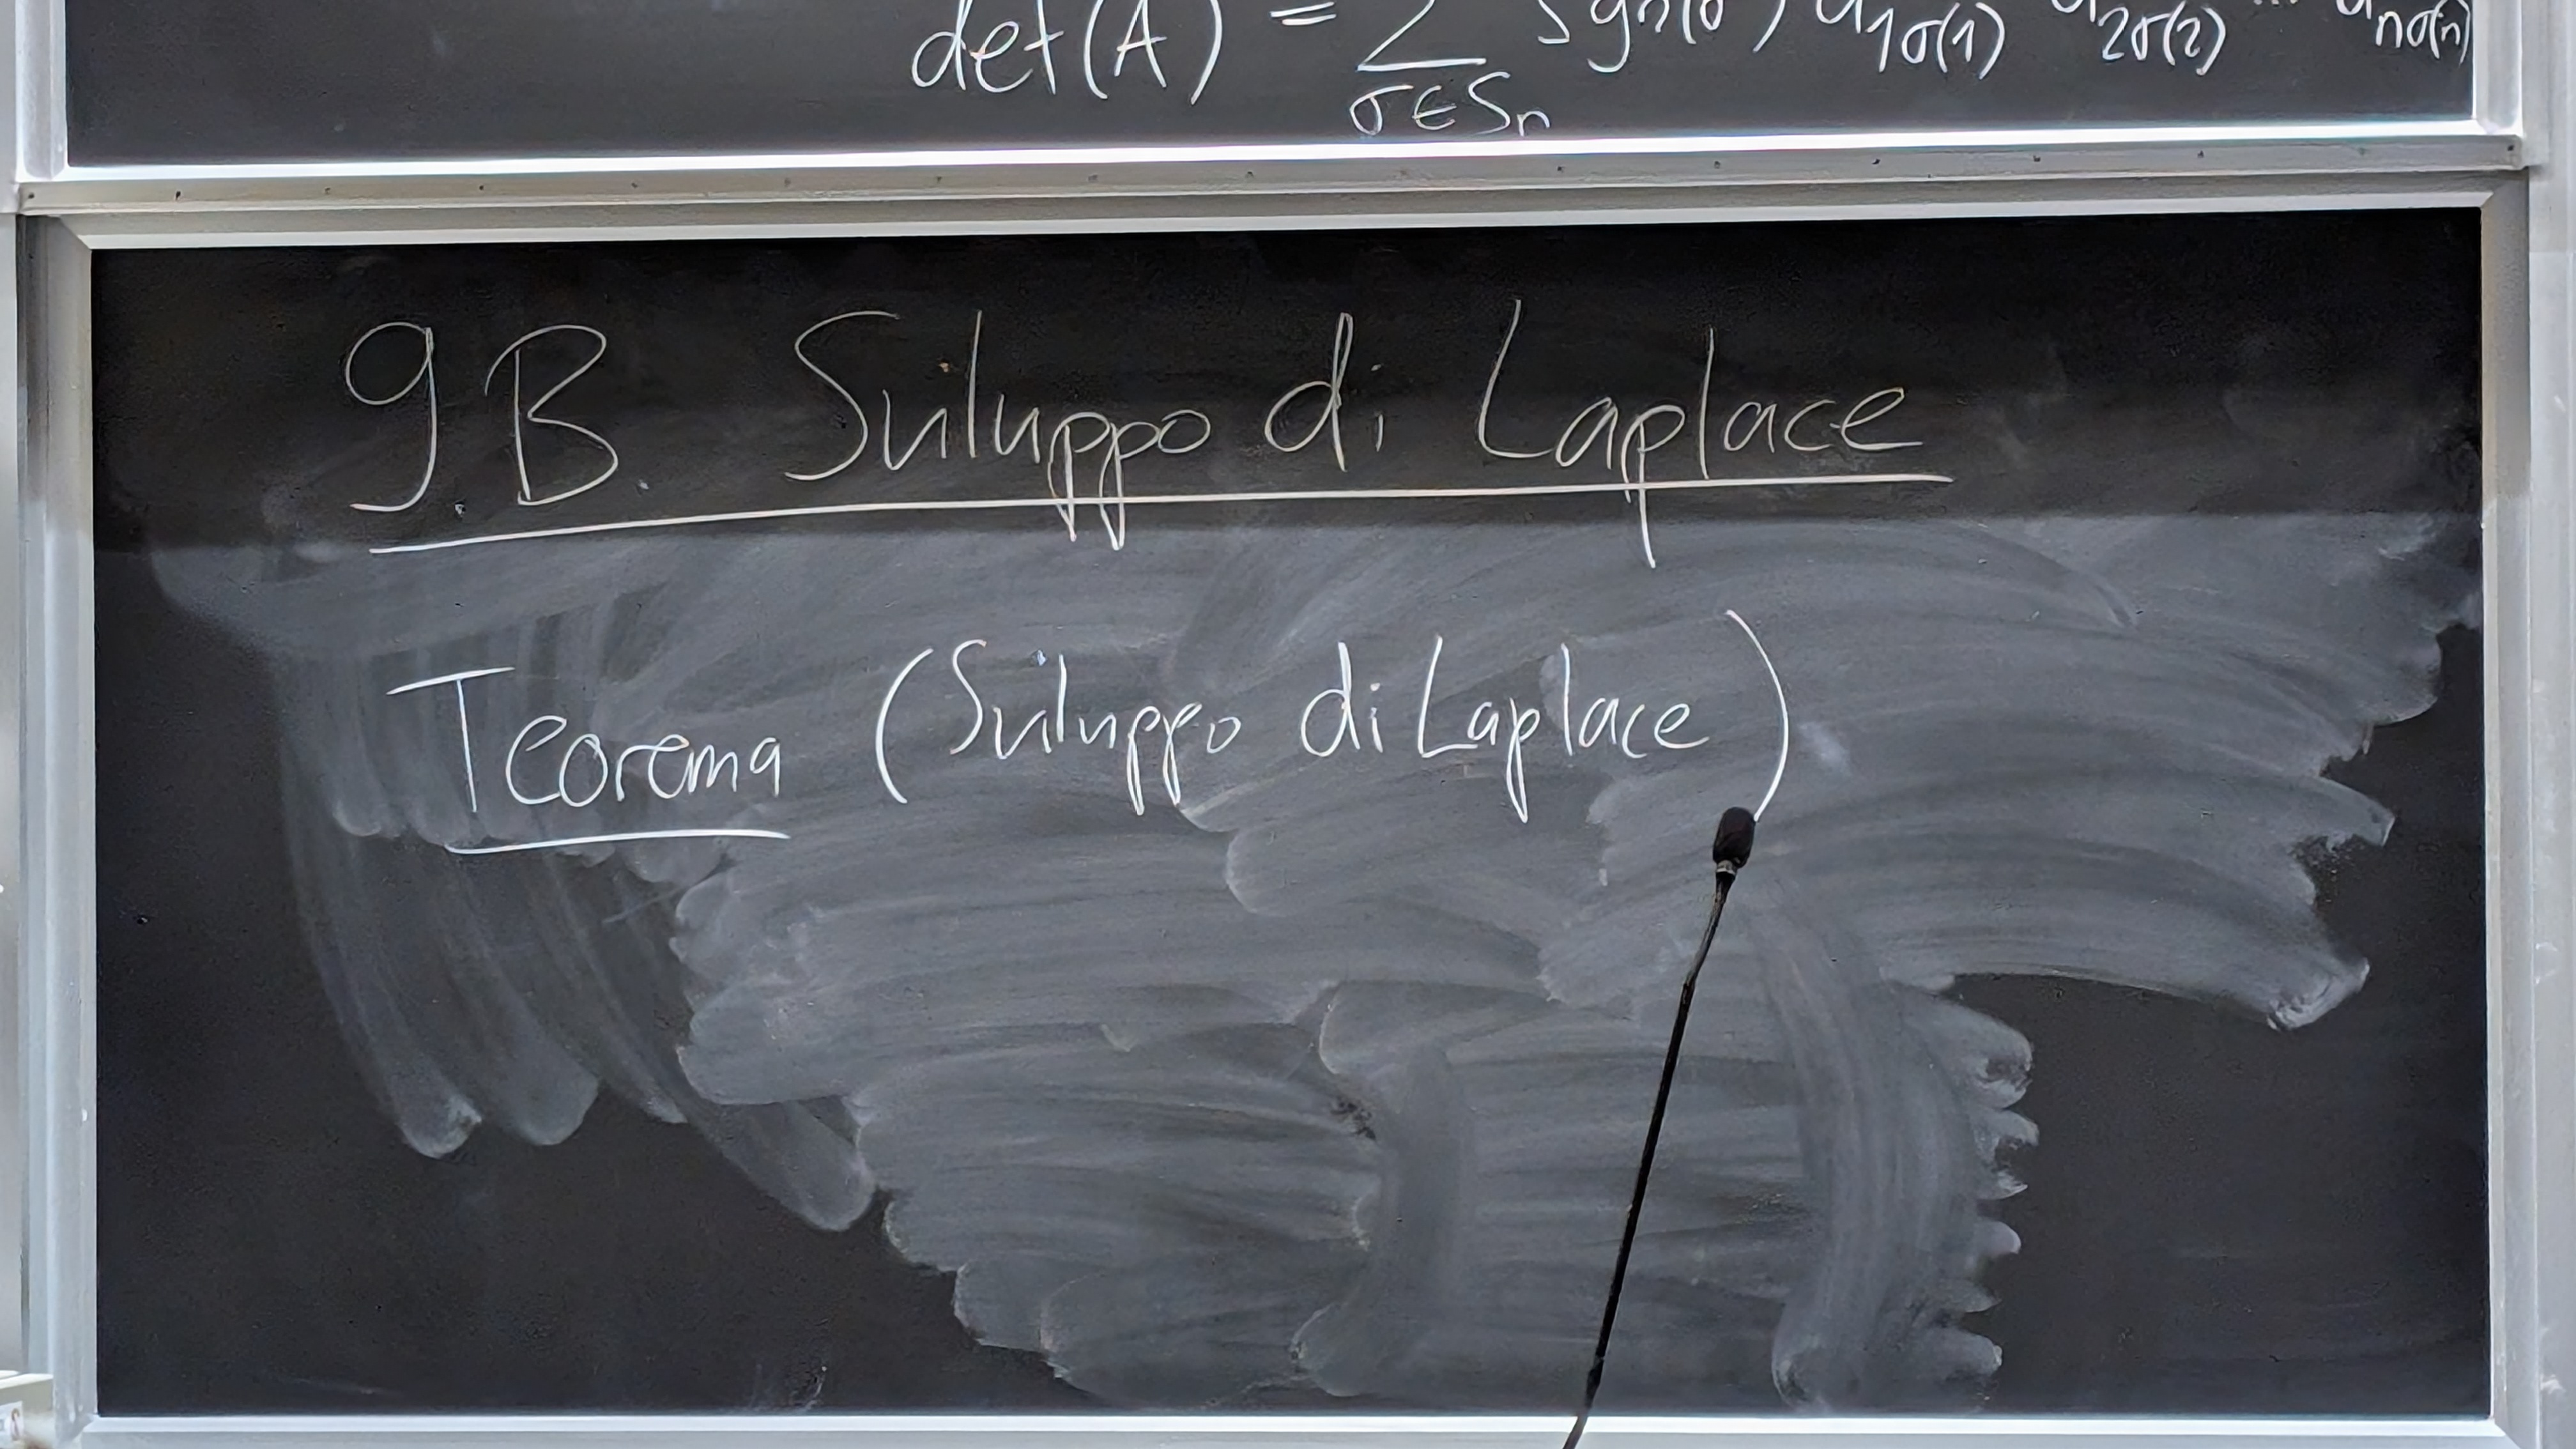 det(A) = ∑ sgn(σ) a₁σ(1) a₂σ(2) ... aₙσ(n)
σ∈Sₙ
9.B. Sviluppo di Laplace
Teorema (Sviluppo di Laplace)